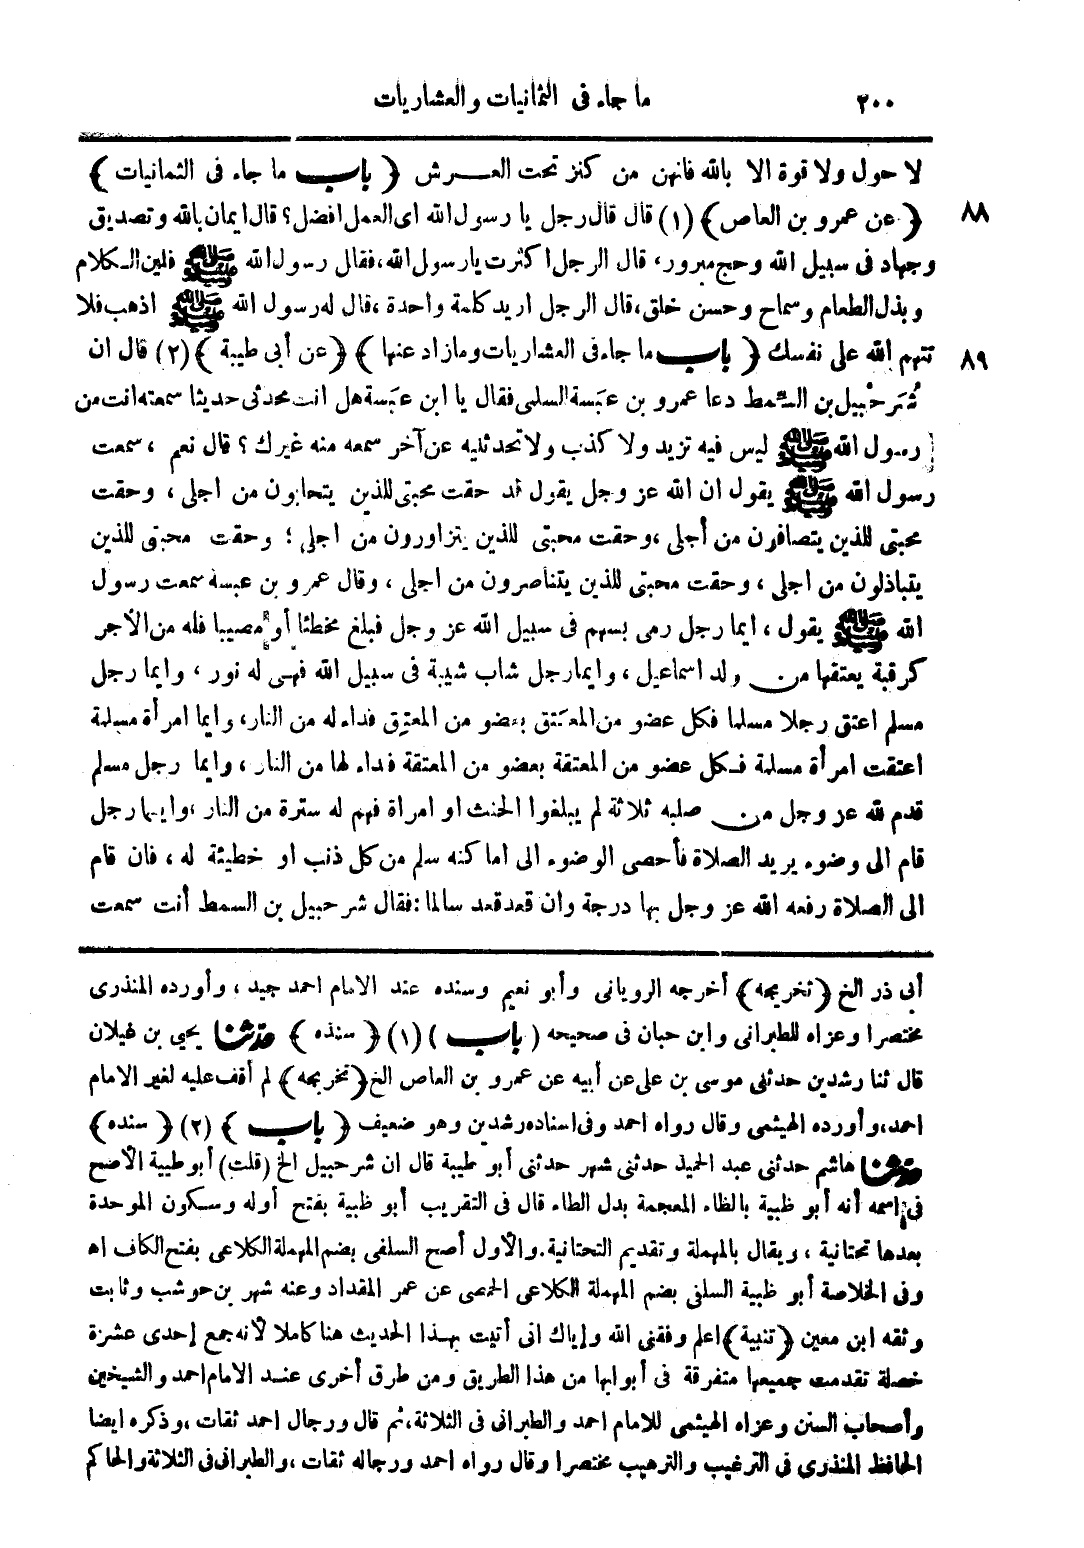 ٢٠٠ ما جاء فى الثمانيات والعشاريات
لا حول ولا قوة الا بالله فانهن من كنز تحت العرش ﴿ باب ما جاء فى الثمانيات ﴾
٨٨ ﴿ عن عمرو بن العاص ﴾ (١) قال قال رجل يا رسول الله اى العمل افضل؟ قال ايمان بالله وتصديق
وجهاد فى سبيل الله وحج مبرور، قال الرجل اكثرت يارسول الله، فقال رسول الله ﷺ فلين الكلام
وبذل الطعام وسماح وحسن خلق، قال الرجل اريد كلمة واحدة، قال له رسول الله ﷺ اذهب فلا
٨٩ تتهم الله على نفسك ﴿ باب ما جاء فى العشاريات وما زاد عنها ﴾ ﴿ عن أبى طيبة ﴾ (٢) قال ان
شُرَحْبِيل بن السَّمط دعا عمرو بن عبَسة السلمى فقال يا ابن عبَسة هل انت محدثى حديثا سمعته انت من
رسول الله ﷺ ليس فيه تزيد ولا كذب ولا تحدثنيه عن آخر سمعه منه غيرك؟ قال نعم، سمعت
رسول الله ﷺ يقول ان الله عز وجل يقول قد حقت محبتى للذين يتحابون من اجلى، وحقت
محبتى للذين يتصافون من أجلى، وحقت محبتى للذين يتزاورون من اجلى؛ وحقت محبتى للذين
يتباذلون من اجلى، وحقت محبتى للذين يتناصرون من اجلى، وقال عمرو بن عبسة سمعت رسول
الله ﷺ يقول، ايما رجل رمى بسهم فى سبيل الله عز وجل فبلغ مخطئا أو مصيبا فله من الأجر
كرقبة يعتقها من ولد اسماعيل، وايما رجل شاب شيبة فى سبيل الله فهى له نور، وايما رجل
مسلم اعتق رجلا مسلما فكل عضو من المعتَق بعضو من المعتِق فداء له من النار، وايما امرأة مسلمة
اعتقت امرأة مسلمة فكل عضو من المعتقة بعضو من المعتقة فداء لها من النار، وايما رجل مسلم
قدم لله عز وجل من صلبه ثلاثة لم يبلغوا الحنث او امراة فهم له سترة من النار، وايما رجل
قام الى وضوء يريد الصلاة فأحصى الوضوء الى اماكنه سلم من كل ذنب او خطيئة له، فان قام
الى الصلاة رفعه الله عز وجل بها درجة وان قعد قعد سالما: فقال شرحبيل بن السمط أنت سمعت
أبى ذر الخ ﴿ تخريجه ﴾ أخرجه الرويانى وأبو نعيم وسنده عند الامام احمد جيد، وأورده المنذرى
مختصرا وعزاه للطبرانى وابن حبان فى صحيحه ( باب ) (١) ﴿ سنده ﴾ حدثنا يحيى بن غيلان
قال ثنا رشدين حدثنى موسى بن على عن أبيه عن عمرو بن العاص الخ ﴿ تخريجه ﴾ لم أقف عليه لغير الامام
احمد، وأورده الهيثمى وقال رواه احمد وفى اسناده رشدين وهو ضعيف ﴿ باب ﴾ (٢) ﴿ سنده ﴾
حدثنا هاشم حدثنى عبد الحميد حدثنى شهر حدثنى أبو طيبة قال ان شرحبيل الخ (قلت) أبو طيبة الأصح
فى اسمه أنه أبو ظبية بالظاء المعجمة بدل الطاء قال فى التقريب أبو ظبية بفتح أوله وسكون الموحدة
بعدها تحتانية، ويقال بالمهملة وتقديم التحتانية. والأول أصح السلفى بضم المهملة الكلاعى بفتح الكاف اه
وفى الخلاصة أبو ظبية السلفى بضم المهملة الكلاعى الحمصى عن عمر المقداد وعنه شهر بن حوشب وثابت
وثقه ابن معين ﴿ تنبية ﴾ اعلم وفقنى الله وإياك انى أتيت بهذا الحديث هنا كاملا لأنه جمع إحدى عشرة
خصلة تقدمت جميعها متفرقة فى أبوابها من هذا الطريق ومن طرق أخرى عند الامام احمد والشيخين
وأصحاب السنن وعزاه الهيثمى للامام احمد والطبرانى فى الثلاثة، ثم قال ورجال احمد ثقات، وذكره ايضا
الحافظ المنذرى فى الترغيب والترهيب مختصرا وقال رواه احمد ورجاله ثقات، والطبرانى فى الثلاثة والحاكم